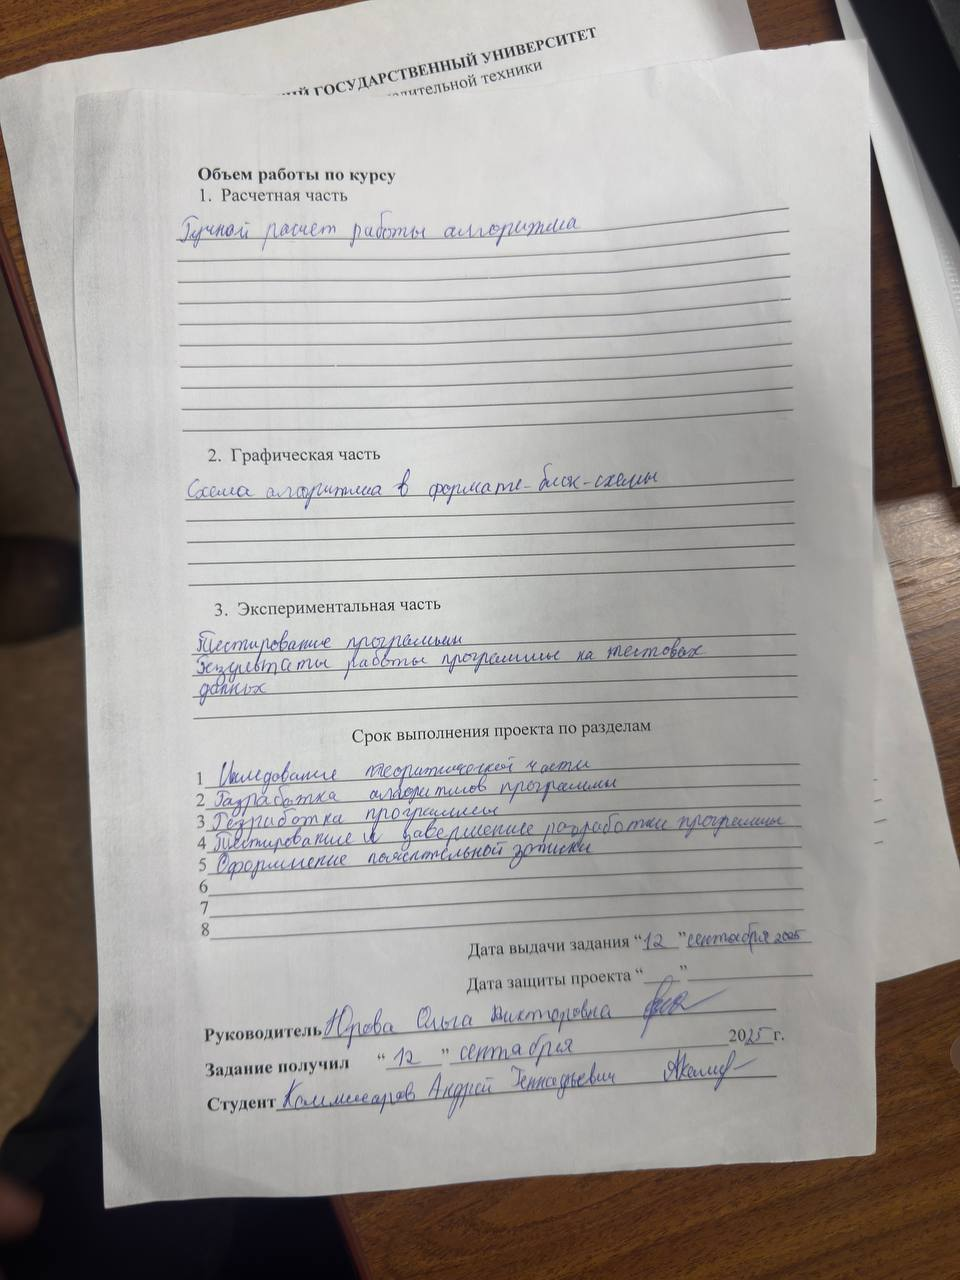 ГОСУДАРСТВЕННЫЙ УНИВЕРСИТЕТ
техники
Объем работы по курсу
1. Расчетная часть
Ручной расчет работы алгоритма
2. Графическая часть
Схема алгоритма в формате блок-схемы
3. Экспериментальная часть
Тестирование программы
Результаты работы программы на тестовых
данных
Срок выполнения проекта по разделам
1 Исследование теоритической части
2 Разработка алгоритмов программы
3 Разработка программы
4 Тестирование и завершение разработки программы
5 Оформление пояснительной записки
6
7
8
Дата выдачи задания “12” сентября 2025
Дата защиты проекта “ ”
Руководитель Юрова Ольга Викторовна
Задание получил “12” сентября 2025 г.
Студент Комиссаров Андрей Геннадьевич